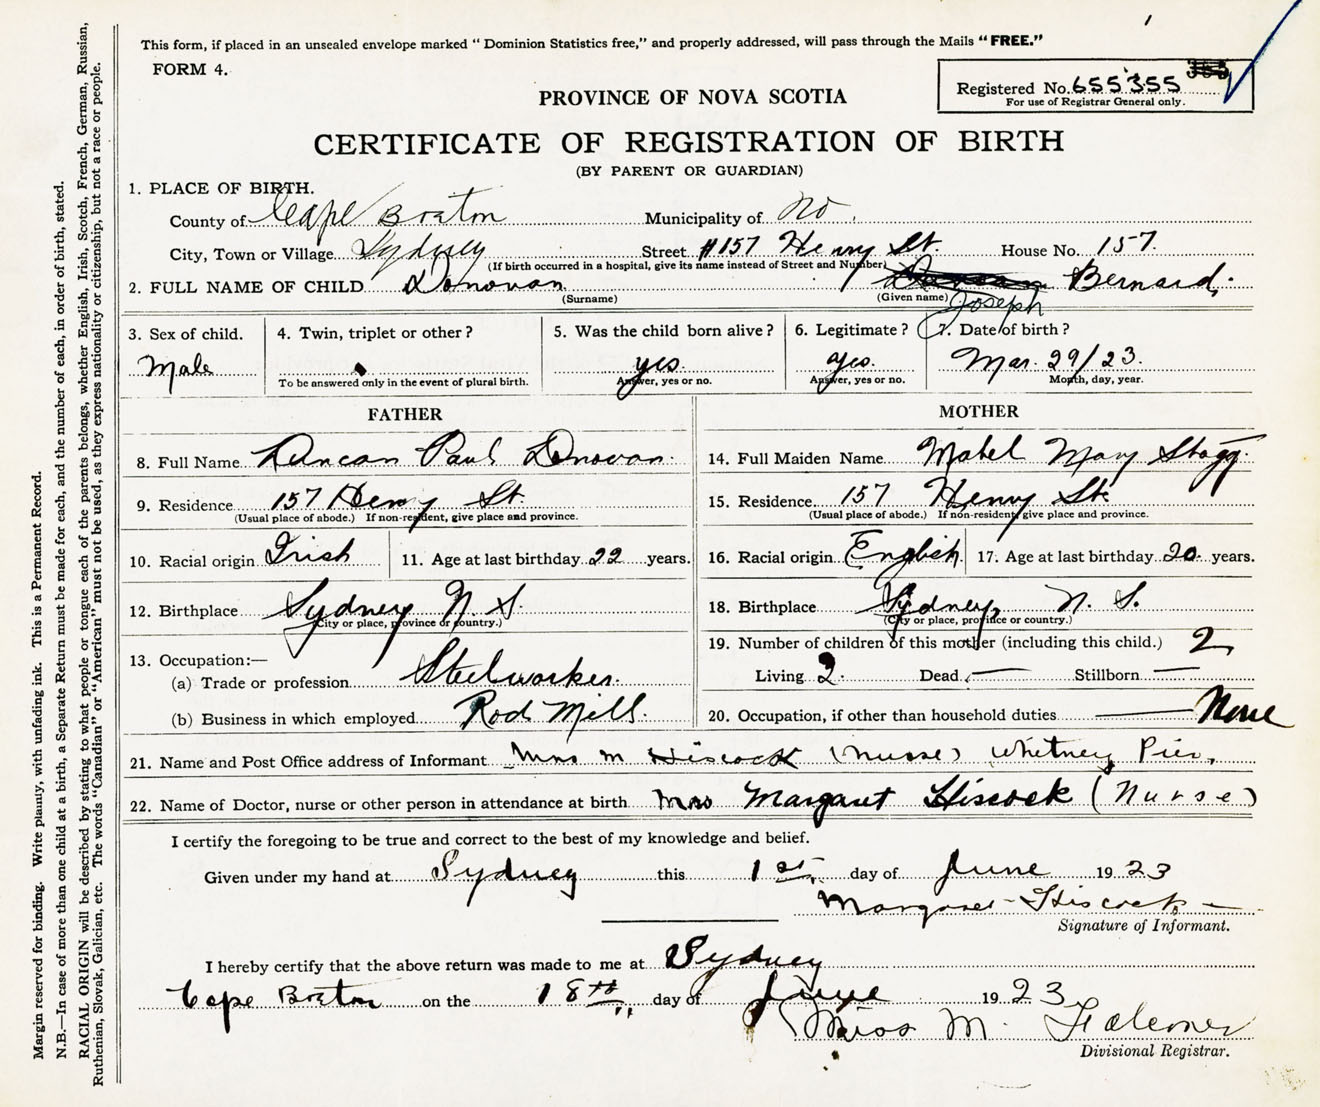 This form, if placed in an unsealed envelope marked "Dominion Statistics free," and properly addressed, will pass through the Mails "FREE."
FORM 4.
Registered No. 655355
For use of Registrar General only.
PROVINCE OF NOVA SCOTIA
CERTIFICATE OF REGISTRATION OF BIRTH
(BY PARENT OR GUARDIAN)
1. PLACE OF BIRTH.
County of Cape Braton Municipality of No.
City, Town or Village Sydney Street #157 Henry St. House No. 157.
(If birth occurred in a hospital, give its name instead of Street and Number)
2. FULL NAME OF CHILD Donovan Bernard,
(Surname) (Given name) Joseph
3. Sex of child. 4. Twin, triplet or other? 5. Was the child born alive? 6. Legitimate? 7. Date of birth?
Male yes. yes. Mar. 29/23.
To be answered only in the event of plural birth. Answer, yes or no. Answer, yes or no. Month, day, year.
FATHER MOTHER
8. Full Name Duncan Paul Donovan. 14. Full Maiden Name Mabel Mary Stagg.
9. Residence 157 Henry St. 15. Residence 157 Henry St.
(Usual place of abode.) If non-resident, give place and province. (Usual place of abode.) If non-resident, give place and province.
10. Racial origin Irish 11. Age at last birthday 22 years. 16. Racial origin English. 17. Age at last birthday 20 years.
12. Birthplace Sydney N. S. 18. Birthplace Sydney, N. S.
(City or place, province or country.) (City or place, province or country.)
13. Occupation:— 19. Number of children of this mother (including this child.) 2
(a) Trade or profession Steelworker. Living 2. Dead — Stillborn —
(b) Business in which employed Rod Mill. 20. Occupation, if other than household duties — None
21. Name and Post Office address of Informant Mrs M Hiscock (Nurse) Whitney Pier,
22. Name of Doctor, nurse or other person in attendance at birth Mrs Margaret Hiscock (Nurse)
I certify the foregoing to be true and correct to the best of my knowledge and belief.
Given under my hand at Sydney this 1st. day of June 1923
Margaret Hiscock
Signature of Informant.
I hereby certify that the above return was made to me at Sydney
Cape Braton on the 18th day of June 1923
Miss M. Falconer
Divisional Registrar.
Margin reserved for binding. Write plainly, with unfading ink. This is a Permanent Record.
N.B.—In case of more than one child at a birth, a Separate Return must be made for each, and the number of each, in order of birth, stated.
RACIAL ORIGIN will be described by stating to what people or tongue each of the parents belongs, whether English, Irish, Scotch, French, German, Russian,
Ruthenian, Slovak, Galician, etc. The words "Canadian" or "American" must not be used, as they express nationality or citizenship, but not a race or people.